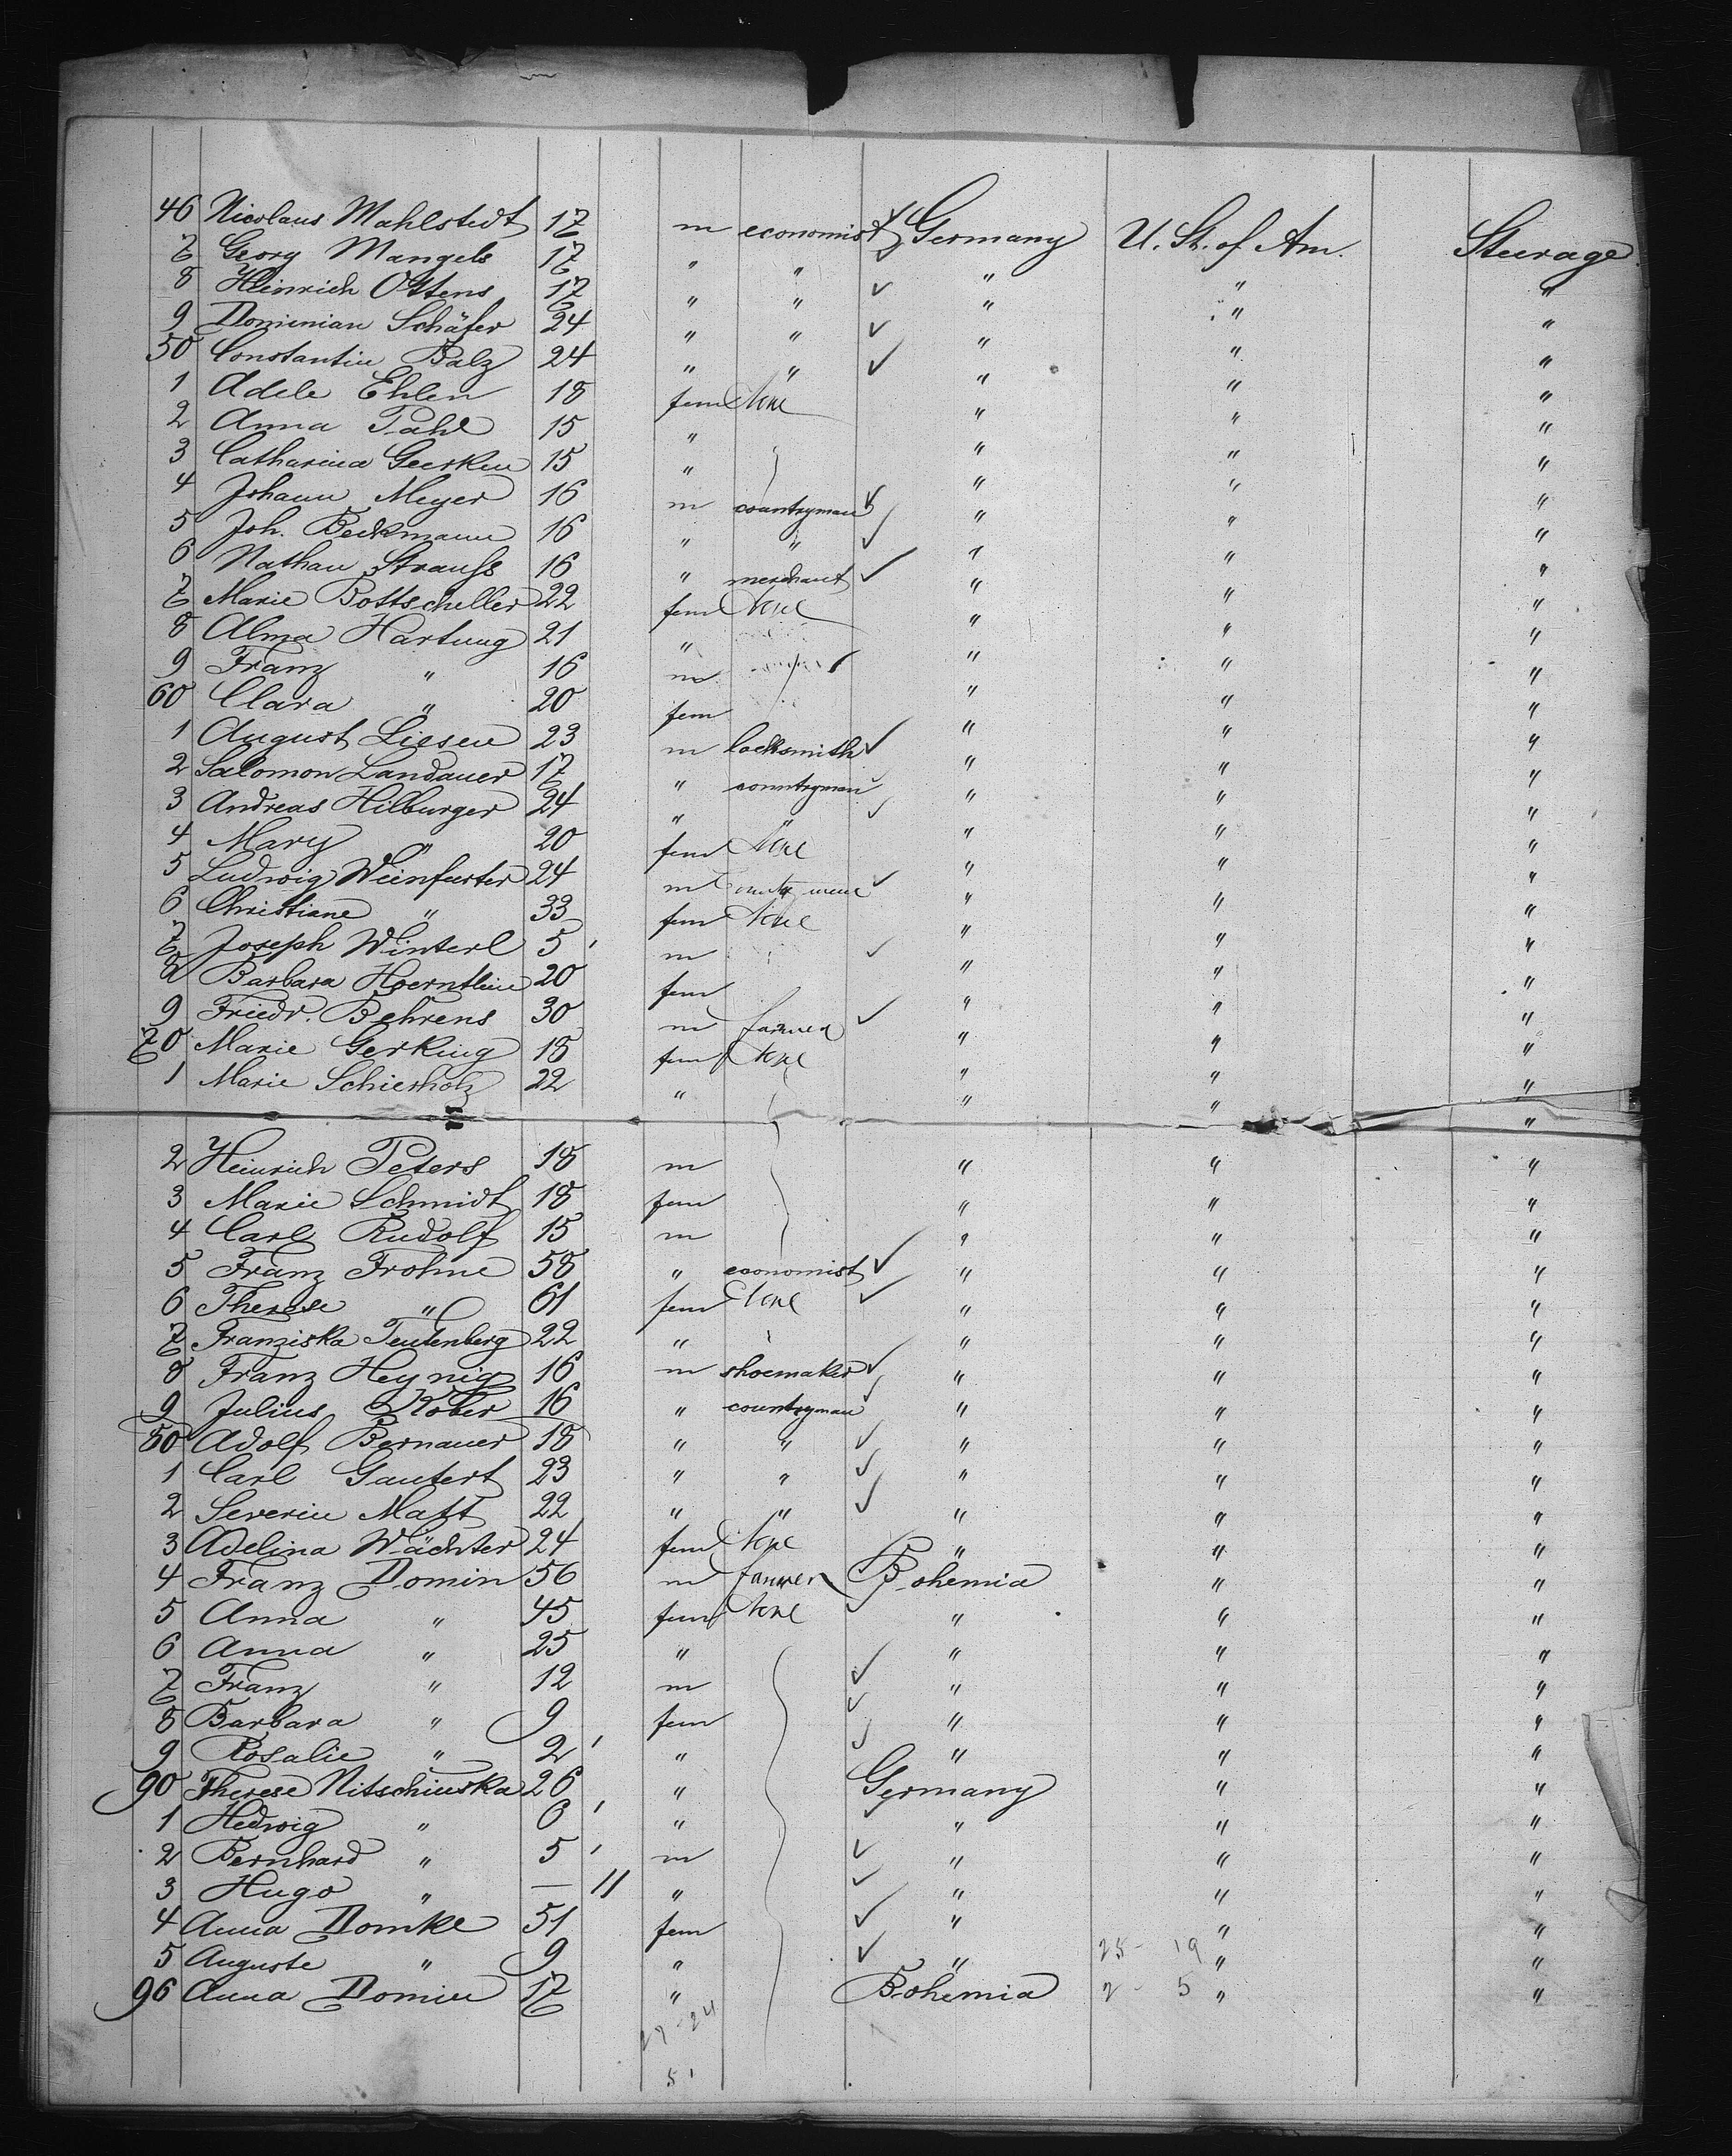 46 Nicolaus Mahlstedt 17 m economist Germany U. St. of Am. Steerage
7 Georg Mangels 17 " " " " "
8 Heinrich Ottens 17 " " " " "
9 Dominian Schäfer 24 " " " " "
50 Constantin Balz 24 " " " " "
1 Adele Ehlen 18 fem None " " "
2 Anna Pahl 15 " " " "
3 Catharina Geerken 15 " " " "
4 Johann Meyer 16 m countryman " " "
5 Joh. Beckmann 16 " " " " "
6 Nathan Strauß 16 " merchant " " "
7 Marie Bottscheller 22 fem None " " "
8 Alma Hartung 21 " " " "
9 Franz " 16 m " " "
60 Clara " 20 fem " " "
1 August Liesen 23 m locksmith " " "
2 Salomon Landauer 17 " countryman " " "
3 Andreas Hilburger 24 " " " " "
4 Mary " 20 fem None " " "
5 Ludwig Weinfurter 24 m " " "
6 Christiane " 33 fem None " " "
7 Joseph Winterl 5 m " " "
8 Barbara Hoerntlein 20 fem " " "
9 Friedr. Behrens 30 m farmer " " "
70 Marie Gerking 18 fem None " " "
1 Marie Schierholz 22 " " " "
2 Heinrich Peters 18 m " " "
3 Marie Schmidt 18 fem " " "
4 Carl Rudolf 15 m " " "
5 Franz Frohne 58 " economist " " "
6 Therese " 61 fem None " " "
7 Franziska Teutenberg 22 " " " "
8 Franz Heynig 16 m shoemaker " " "
9 Julius Kober 16 " countryman " " "
80 Adolf Bernauer 18 " " " " "
1 Carl Gautert 23 " " " " "
2 Severin Matt 22 " " " " "
3 Adelina Wächter 24 fem None " " "
4 Franz Domin 56 m farmer Bohemia " "
5 Anna " 45 fem None " " "
6 Anna " 25 " " " "
7 Franz " 12 m " " "
8 Barbara " 9 fem " " "
9 Rosalie " 2 " " " "
90 Therese Nitschinska 26 " Germany " "
1 Hedwig " 6 " " " "
2 Bernhard " 5 m " " "
3 Hugo " — 11 " " " "
4 Anna Domke 51 fem " " "
5 Auguste " 9 " " 25 - 19 " "
96 Anna Domin 17 " Bohemia 2 - 5 " "
27-24
51